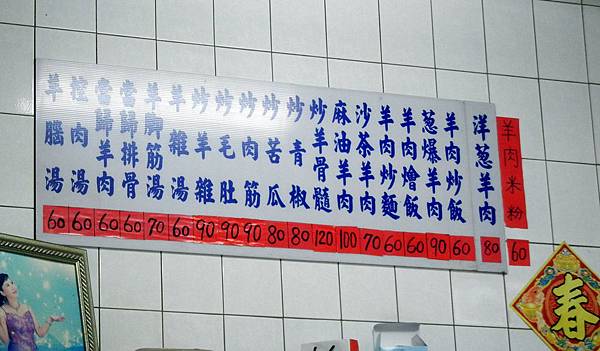 羊肉米粉 60
洋葱羊肉 80
羊肉炒飯 60
葱爆羊肉 90
羊肉燴飯 60
羊肉炒麵 60
沙茶羊肉 70
麻油羊肉 100
炒羊骨髓 120
炒青椒 80
炒苦瓜 80
炒肉筋 90
炒毛肚 90
炒羊雜 90
羊雜湯 60
羊腳筋湯 70
當歸排骨 60
當歸羊肉 60
控肉湯 60
羊腦湯 60
春